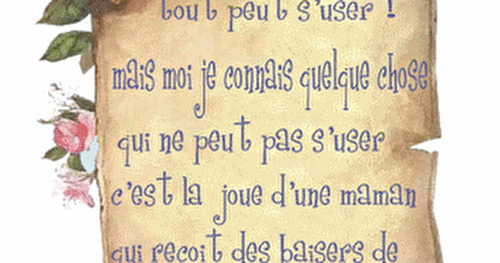 tout peut s'user !
mais moi je connais quelque chose
qui ne peut pas s'user
c'est la joue d'une maman
qui reçoit des baisers de